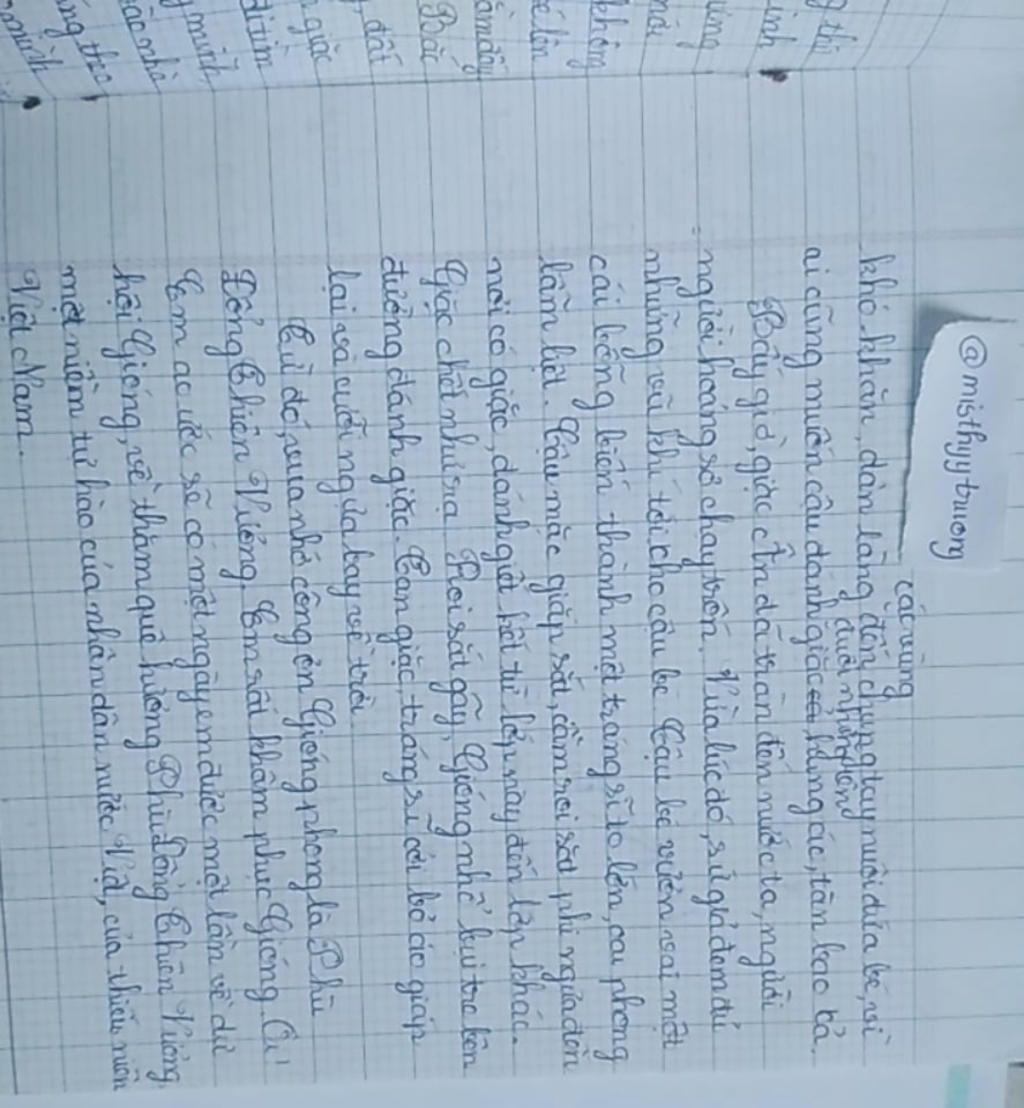 @misthyytrương
các vùng
khó khăn, dân làng đến chung tay nuôi đứa bé, vì
đuổi những tên
ai cũng muốn cậu đánh giặc hung ác, tàn bạo ấy.
Bấy giờ, giặc Ân đã tràn đến nước ta, người
người hoảng sợ chạy trốn. Vừa lúc đó, sứ giả đem đủ
những vũ khí tới cho cậu bé. Cậu bé vươn vai một
cái bỗng biến thành một tráng sĩ to lớn, oai phong
lẫm liệt. Cậu mặc giáp sắt, cầm roi sắt phi ngựa đến
nơi có giặc, đánh giết hết từ lớp này đến lớp khác.
Giặc chết như rạ. Roi sắt gãy, Gióng nhổ bụi tre bên
đường đánh giặc. Tan giặc, tráng sĩ cởi bỏ áo giáp
lại và cưỡi ngựa bay về trời.
Từ đó, vua nhớ công ơn Gióng phong là Phù
Đổng Thiên Vương. Em rất khâm phục Gióng. Ôi!
Em ao ước sẽ có một ngày em được một lần về dự
hội Gióng, về thăm quê hương Phù Đổng Thiên Vương,
một niềm tự hào của nhân dân nước Việt, của thiếu niên
Việt Nam.
g thì
inh
ứng
nói
không
é lên
ầm đầy
Bắc
, đất
n giặc
đi tìm
g mình
ào nhà